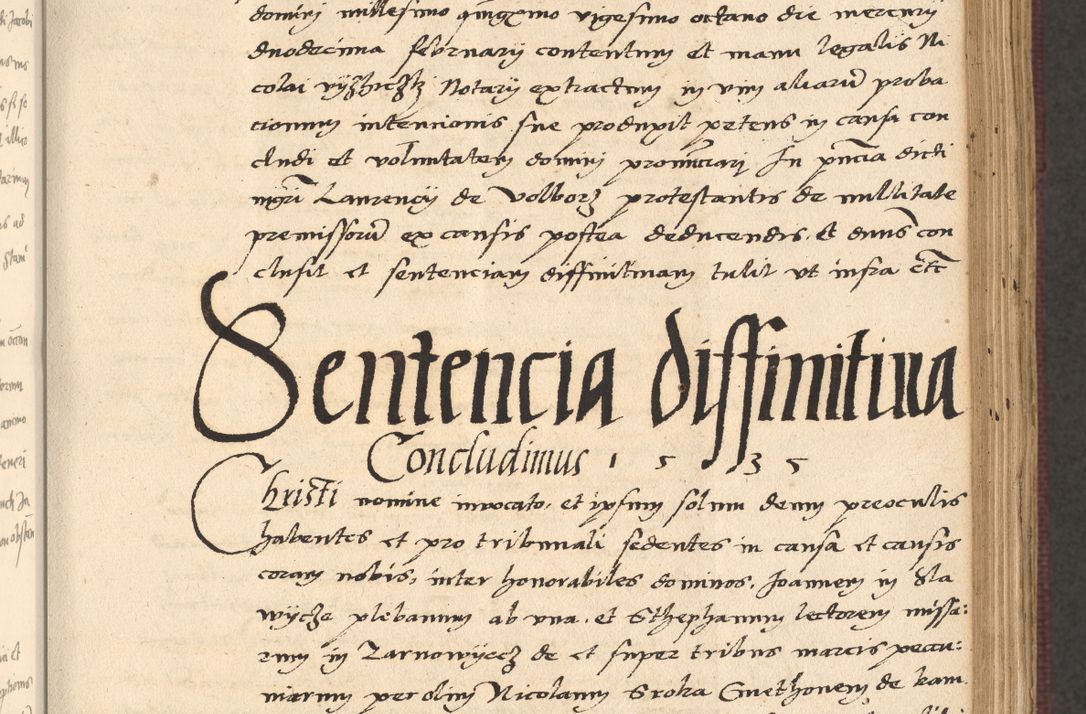 domini millesimo qingmo vigesimo octano die mercurij
duodecima februarij contentum et manu legalis Ni
colai Notarij extractum in vim aliarū proba
cionum intencionis sue produxit petens in causa con
cludi et voluntatem domini pronunciari In pñcia dicti
mgri Laurencij de Volborz protestantis de nullitate
premissorū ex causis postea deducendis. Et dnus con
clusit et sentenciam diffinitiuam tulit vt infra etc
Sentencia diffinitiua
Concludimus 1 5 35
Christi nomine inuocato. et ipsum solum deum preoculis
habentes et pro tribunali sedentes in causa et causis
coram nobis, inter honorabiles dominos. Joannem in Sla
wycze plebanum ab vna. et Sthephanum lectorem missa:
rum in Zarnowyecz de et super tribus marcis pecu:
niarum per olim Nicolaum Sroka Cmethonem de kam